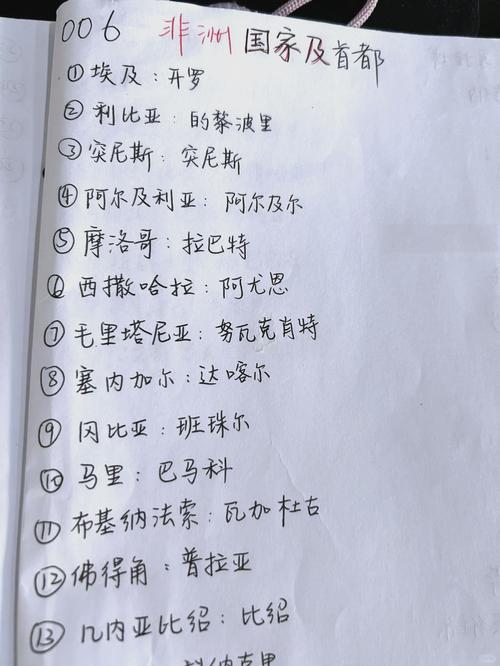 006 非洲国家及首都
① 埃及：开罗
② 利比亚：的黎波里
③ 突尼斯：突尼斯
④ 阿尔及利亚：阿尔及尔
⑤ 摩洛哥：拉巴特
⑥ 西撒哈拉：阿尤恩
⑦ 毛里塔尼亚：努瓦克肖特
⑧ 塞内加尔：达喀尔
⑨ 冈比亚：班珠尔
⑩ 马里：巴马科
⑪ 布基纳法索：瓦加杜古
⑫ 佛得角：普拉亚
⑬ 几内亚比绍：比绍
科纳克里